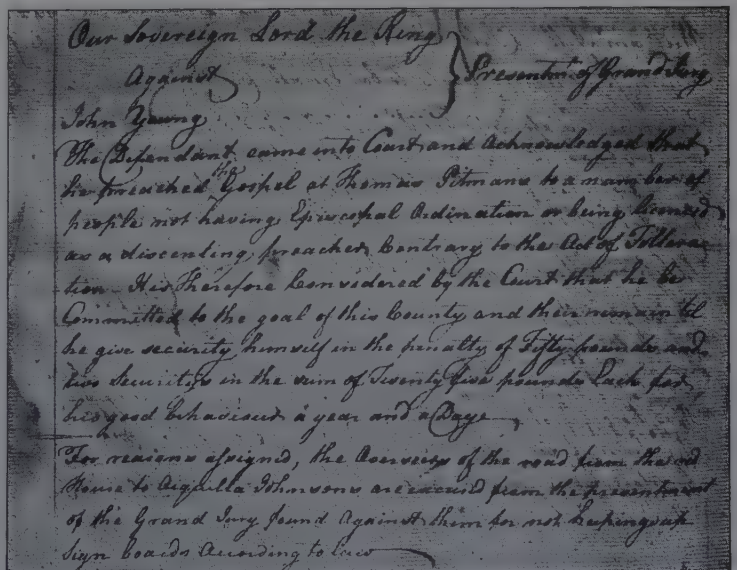 Our Sovereign Lord the King
Against
Presentmt. of Grand Jury
John Young
The Defendant came into Court and Acknowledged that
he preached the Gospel at Thomas Pitmans to a number of
people not having Episcopal Ordination or being licensed
as a discenting preacher Contrary to the Act of Tollera-
tion It is Therefore Considered by the Court that he be
Committed to the goal of this County and their remain til
he give security himself in the penalty of Fifty pounds and
two Securitys in the sum of Twenty five pounds Each for
his good behaviour a year and a Daye
For reasons assigned, the Overseers of the road from the red
House to Acquilla Johnsons are excused from the presentment
of the Grand Jury found Against them for not keeping up
sign boards According to law